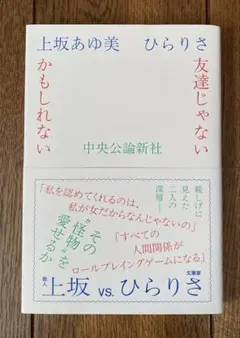 上坂あゆ美 ひらりさ
友達じゃない
かもしれない
中央公論新社
親しげに
見えた
二人の
深層――
「私を認めてくれるのは、
私が女だからなんじゃないの」
その"怪物"を
愛せるか
「すべての
人間関係が
ロールプレイングゲームになる」
歌人 上坂 vs. ひらりさ 文筆家